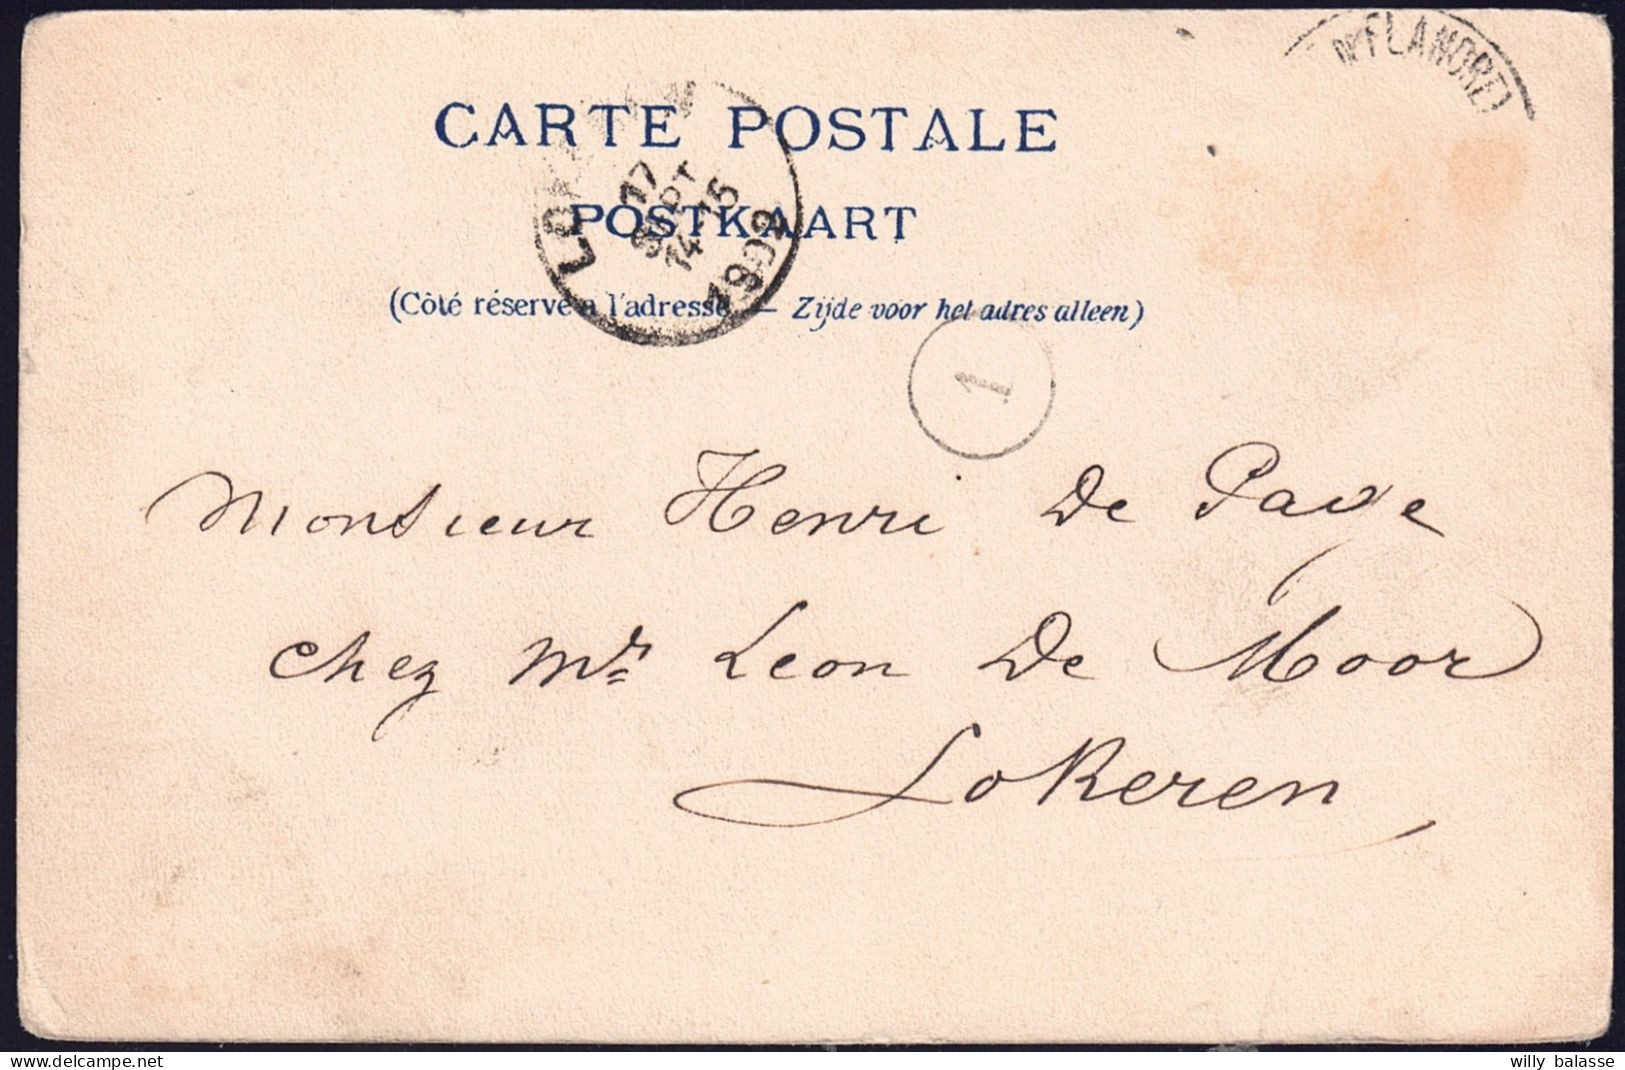 FLANDRE)
CARTE POSTALE
17
SEPT
14-15
1902
POSTKAART
(Côté réservé a l'adresse — Zijde voor het adres alleen)
1
Monsieur Henri De Pave
chez Mr Leon De Moor
Lokeren
www.delcampe.net
willy balasse